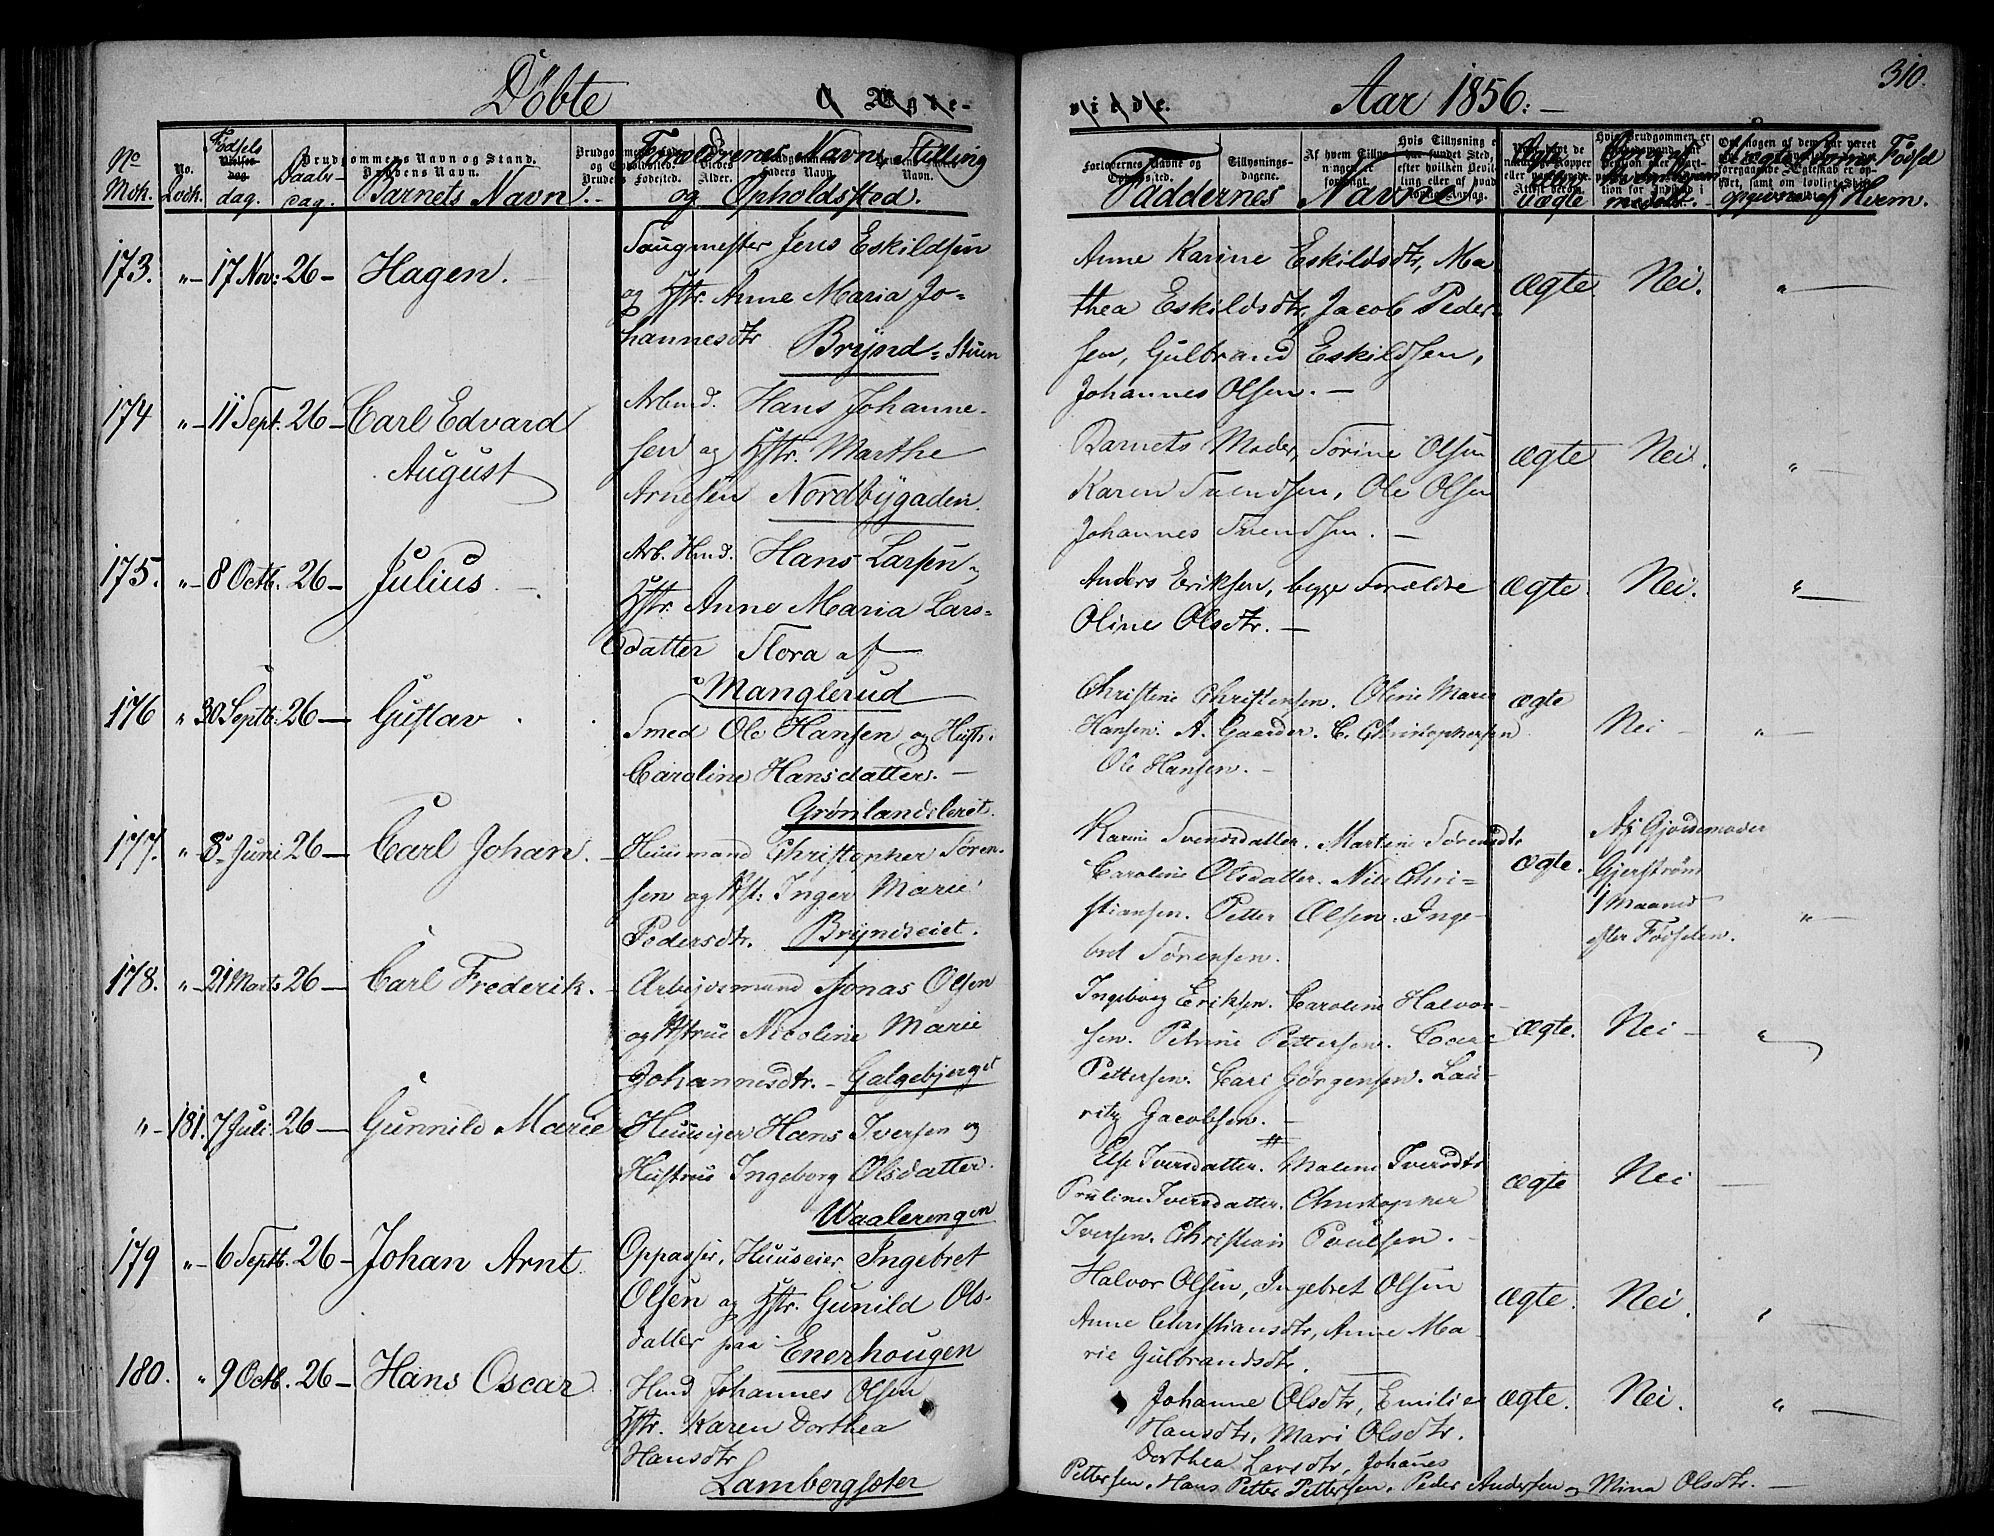 Døbte
Aar 1856. —
310.
No Mck.
No. Qvck.
Fødselsdag.
Daabsdag.
Brudgommens Navn og Stand.
Barnets Navn.
Forældrenes Navn, Stilling
og Opholdssted.
Faddernes Navne
Ægte eller uægte
173. „ 17 Nov: 26 — Hagen. —
Jens Eskildsen
og Hstr. Anne Maria Jo-
hannesdtr Brynd = Stuen
Anne Karine Eskildsdtr, Ma-
thea Eskildsdtr, Jacob Peder-
sen, Gulbrand Eskildsen,
Johannes Olsen. —
Ægte. Nei. „ —
174 „ 11 Sept. 26 — Carl Edvard
August
Arbmd. Hans Johanne-
sen og Hstr. Marthe
Arnesen Nordbygaden.
Barnets Moder, Sørine Olsen
Karen Svendsen, Ole Olsen
Johannes Svendsen. —
Ægte Nei. „ —
175. „ 8 Octb. 26 — Julius. —
Arb. Hmd. Hans Larsen og
Hstr. Anne Maria Lars-
datter Flora af
Manglerud
Anders Eriksen, begge Forældre
Oline Olsdtr. —
Ægte. Nei. „ —
176 „ 30 Septb: 26 — Gustav.
Smed Ole Hansen og Hustr:
Caroline Hansdatter. —
Grønlandsleret.
Christine Christensen. Oline Marie
Hansen. A. Gaarder. C. Christophersen
Ole Hansen. —
ægte Nei — „ —
177. „ 8 Juni 26 — Carl Johan. —
Huusmand Christopher Søren-
sen og Hst: Inger Marie
Pedersdtr. Bryndseiet.
Karini Svendsdatter. Martini Sørensdtr.
Caroline Olsdatter. Nils Chri-
stiansen. Petter Olsen. Inge-
bret Sørensen.
ægte. Af Gjordemoder
Gjerstrøm
1 Maaned
efter Fødselen. „ —
178. „ 21 Marts 26 — Carl Frederik. —
Arbejdsmand Jonas Olsen
og Hstrue Nicoline Marie
Johannesdtr. — Galgebjerget
Ingeborg Eriksen. Caroline Halvor-
sen. Petrine Pettersen. Carl
Pettersen. Carl Jørgensen. Lau-
ritz Jacobsen. —
ægte. Nei — „
„ 181. 7 Juli. 26 — Gunnild Marie
Huuseier Hans Iversen og
Hustrue Ingeborg Olsdatter.
Waalerengen
Else Iversdatter. Malene Iversdtr
Pauline Iversdatter. Christopher
Iversen. Christian Poulsen. —
ægte Nei —
179 „ 6 Septb. 26 — Johan Arnt
Oppasser, Huuseier Ingebret
Olsen og Hstr. Gunild Ols-
datter paa Enerhougen
Halvor Olsen, Ingebret Olsen
Anne Christiansdtr, Anne Ma-
rie Gulbrandsdtr.
ægte. Nei. „
180. „ 9 Octb. 26 — Hans Oscar
Hmd Johannes Olsen
Hstr. Karen Dorthea
Hansdtr
Lambergsæter
Johanne Olsdtr, Emilie
Hansdtr, Mari Olsdtr.
Dorthea Larsdtr, Johanes
Pettersen, Hans Petter Pettersen, Peder Andersen og Mina Olsdtr. —
ægte. Nei. „ —